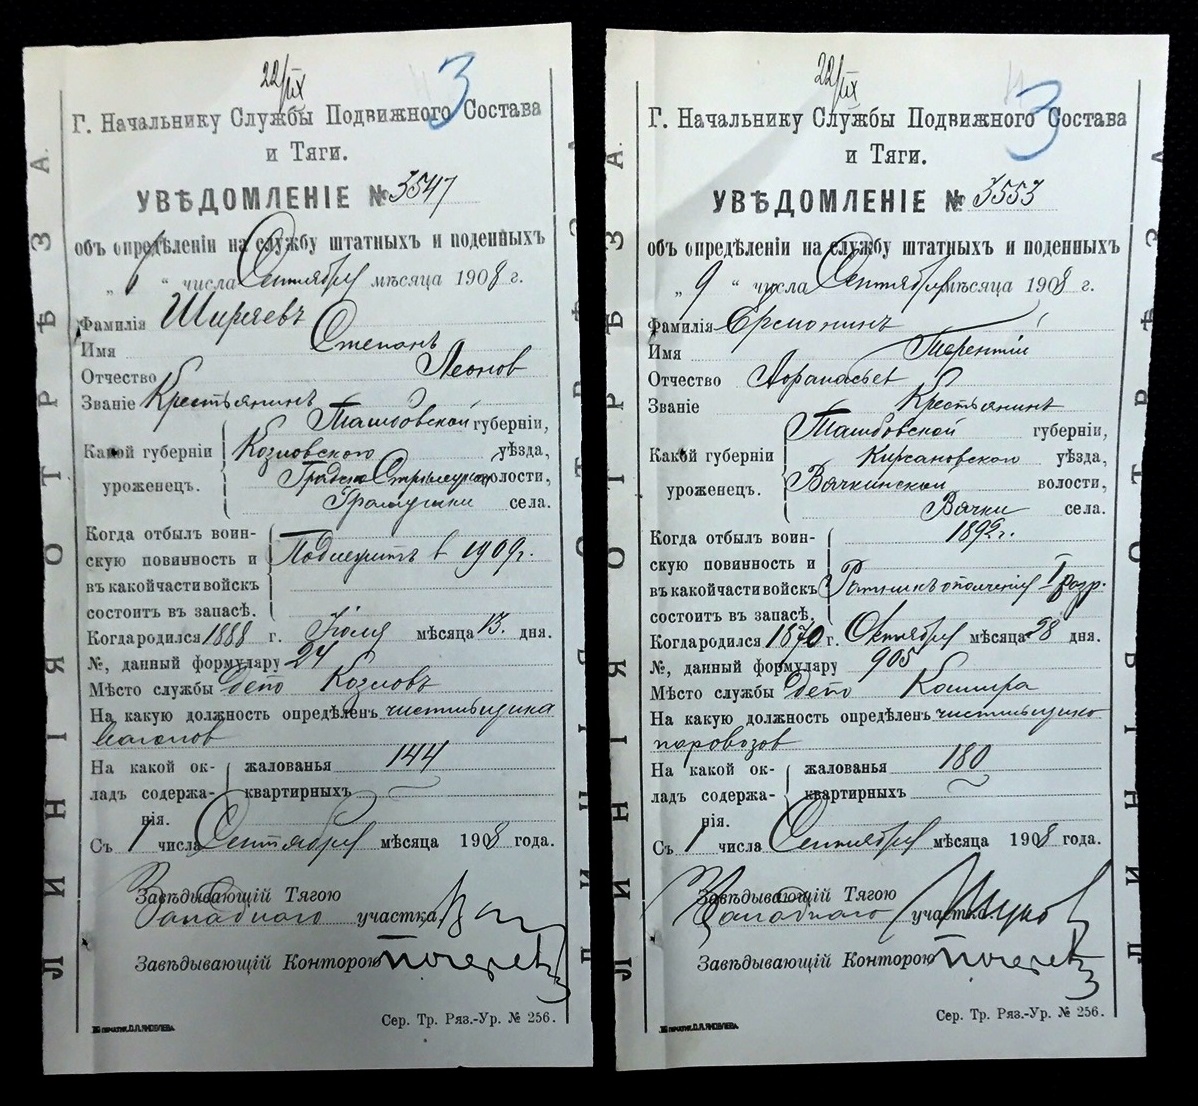 22/IX
3
Г. Начальнику Службы Подвижного Состава
и Тяги.
УВѢДОМЛЕНІЕ № 3547
объ опредѣленіи на службу штатныхъ и поденныхъ
„ 6 “ числа Сентября мѣсяца 1908 г.
Фамилія Ширяевъ
Имя Степанъ
Отчество Леонов
Званіе Крестьянинъ
Тамбовской губерніи,
Какой губерніи Козловского уѣзда,
уроженецъ. волости,
села.
Когда отбылъ воин-
скую повинность и Подлежитъ в 1909г.
въ какой части войскъ
состоитъ въ запасѣ.
Когда родился 1888 г. Іюля мѣсяца 13. дня.
№, данный формуляру 24
Мѣсто службы Депо Козловъ
На какую должность опредѣленъ чистильщика
вагонов
На какой ок- жалованья 144
ладъ содержа- квартирныхъ
нія.
Съ 1 числа Сентября мѣсяца 1908 года.
Завѣдывающій Тягою
Западного участка
Завѣдывающій Конторою
Сер. Тр. Ряз.-Ур. № 256.
ЛИНІЯ ОТРѢЗА.
22/IX
3
Г. Начальнику Службы Подвижного Состава
и Тяги.
УВѢДОМЛЕНІЕ № 3553
объ опредѣленіи на службу штатныхъ и поденныхъ
„ 9 “ числа Сентября мѣсяца 1908 г.
Фамилія Еремонинъ
Имя Терентій
Отчество Афанасьев
Званіе Крестьянинъ
Тамбовской губерніи,
Какой губерніи Кирсановского уѣзда,
уроженецъ. Вячкинской волости,
Вячки села.
Когда отбылъ воин- 1892г.
скую повинность и
въ какой части войскъ Ратникъ ополченія I разр.
состоитъ въ запасѣ.
Когда родился 1870 г. Октября мѣсяца 28 дня.
№, данный формуляру 905
Мѣсто службы Депо Кашира
На какую должность опредѣленъ чистильщико
паровозов
На какой ок- жалованья 180
ладъ содержа- квартирныхъ
нія.
Съ 1 числа Сентября мѣсяца 1908 года.
Завѣдывающій Тягою
Западного участка
Завѣдывающій Конторою
Сер. Тр. Ряз.-Ур. № 256.
ЛИНІЯ ОТРѢЗА.